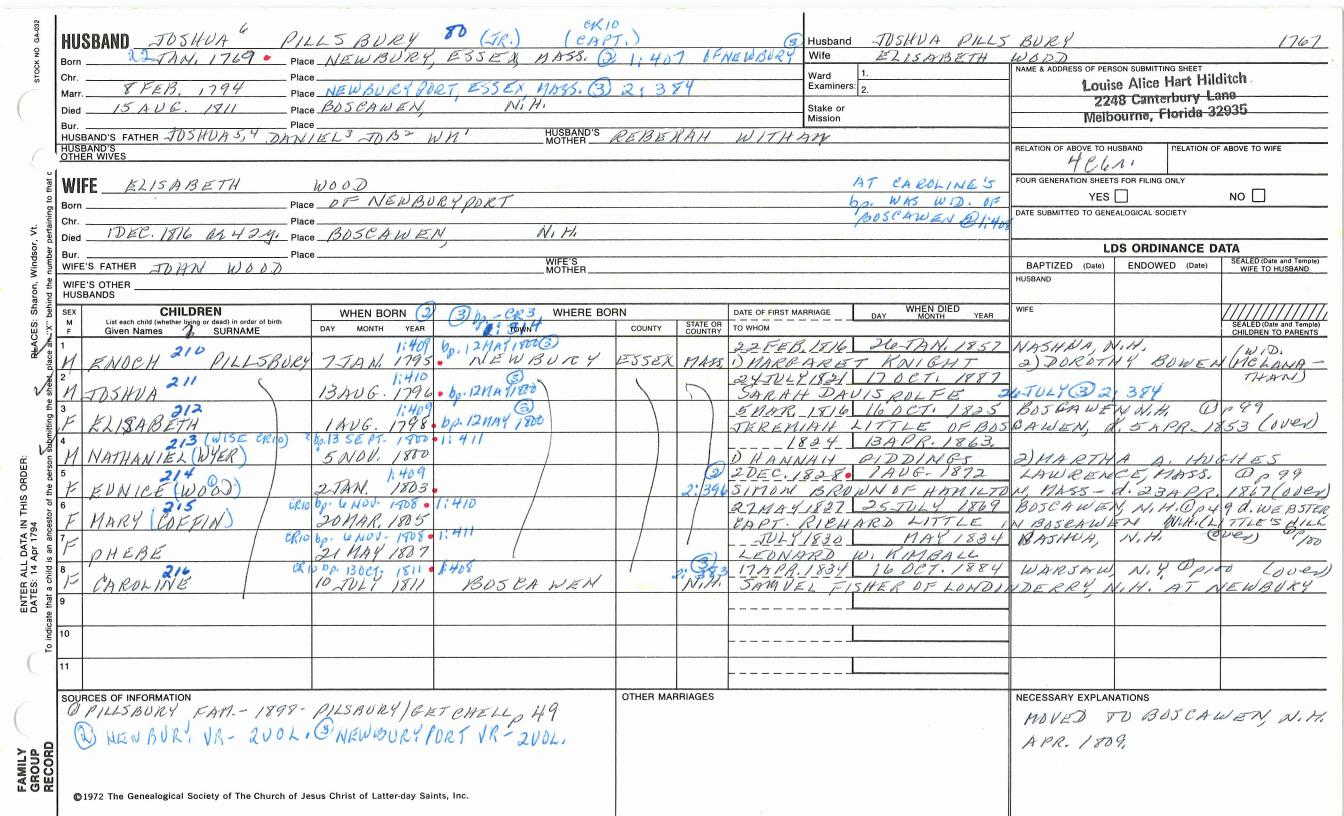 STOCK NO. GA-032
HUSBAND JOSHUA 6 PILLSBURY 80 (JR.) CR10 (CAPT.) ③
Born 22 JAN. 1769 Place NEWBURY, ESSEX, MASS. ② 1:407 OF NEWBURY
Chr. Place
Marr. 8 FEB. 1794 Place NEWBURYPORT, ESSEX, MASS. ③ 2:384
Died 15 AUG. 1811 Place BOSCAWEN, N.H.
Bur. Place
HUSBAND'S FATHER JOSHUA 5,4 DANIEL 3 JOB 2 WM 1 HUSBAND'S MOTHER REBEKAH WITHAM
HUSBAND'S OTHER WIVES
Husband JOSHUA PILLSBURY 1767
Wife ELISABETH WOOD
Ward Examiners: 1.
2.
Stake or Mission
NAME & ADDRESS OF PERSON SUBMITTING SHEET
Louise Alice Hart Hilditch
2248 Canterbury Lane
Melbourne, Florida 32935
RELATION OF ABOVE TO HUSBAND RELATION OF ABOVE TO WIFE
FOUR GENERATION SHEETS FOR FILING ONLY
YES NO
DATE SUBMITTED TO GENEALOGICAL SOCIETY
WIFE ELISABETH WOOD
Born Place OF NEWBURYPORT
Chr. Place
Died 1 DEC. 1816 ae 42y. Place BOSCAWEN, N.H.
Bur. Place
WIFE'S FATHER JOHN WOOD WIFE'S MOTHER
WIFE'S OTHER HUSBANDS
AT CAROLINE'S
bp. WAS WID. OF
BOSCAWEN ② 1:408
LDS ORDINANCE DATA
BAPTIZED (Date) ENDOWED (Date) SEALED (Date and Temple) WIFE TO HUSBAND
HUSBAND
WIFE
SEALED (Date and Temple) CHILDREN TO PARENTS
SEX M F CHILDREN WHEN BORN ② ③ bp - CR3 WHERE BORN DATE OF FIRST MARRIAGE WHEN DIED
List each child (whether living or dead) in order of birth
Given Names SURNAME DAY MONTH YEAR TOWN COUNTY STATE OR COUNTRY TO WHOM DAY MONTH YEAR
1 210 1:409 bp. 12 MAY 1800 ③ 22 FEB. 1816 26 JAN. 1857 NASHUA, N.H. (WID.
M ENOCH PILLSBURY 7 JAN. 1795 NEWBURY ESSEX MASS. 1) MARGARET KNIGHT 2) DOROTHY BOWEN (MCLANATHAN)
2 211 1:410 ③ 24 JULY 1821 17 OCT. 1887
M JOSHUA 13 AUG. 1796 bp. 12 MAY 1800 SARAH DAVIS ROLFE 24 JULY ③ 2:384
3 212 1:409 ③ 5 MAR. 1816 16 OCT. 1825 BOSCAWEN N.H. ① p 99
F ELISABETH 1 AUG. 1798 bp. 12 MAY 1800 JEREMIAH LITTLE OF BOSCAWEN, d. 5 APR. 1853 (over)
4 213 (WISE CR10) bp. 13 SEPT. 1800 1:411 1824 13 APR. 1863
M NATHANIEL (WYER) 5 NOV. 1800 1) HANNAH PIDDINGS 2) MARTHA A. HUGHES
5 214 1:409 ② 2 DEC. 1828 1 AUG. 1872 LAWRENCE, MASS. ① p 99
F EUNICE (WOOD) ① 2 JAN. 1803 2:396 SIMON BROWN OF HAMILTON, MASS - d. 23 APR. 1867 (over)
6 215 CR10 bp. 6 NOV. 1808 1:410 27 MAY 1827 25 JULY 1869 BOSCAWEN, N.H. ① p 49 d. WEBSTER
F MARY (COFFIN) 20 MAR. 1805 CAPT. RICHARD LITTLE IN BOSCAWEN N.H. (LITTLE'S HILL
7 CR10 bp. 6 NOV. 1808 1:411 JULY 1830 MAY 1834 NASHUA, N.H. (over) ① p100
F PHEBE 21 MAY 1807 LEONARD W. KIMBALL
8 216 CR10 bp. 13 OCT. 1811 1:408 ③ 17 APR. 1834 16 OCT. 1884 WARSAW, N.Y. ① p100 (over)
F CAROLINE 10 JULY 1811 BOSCAWEN N.H. SAMUEL FISHER OF LONDONDERRY, N.H. AT NEWBURY
9
10
11
SOURCES OF INFORMATION
① PILLSBURY FAM. - 1898 - PILSBURY/GETCHELL p 49
② NEWBURY VR - 2 VOL. ③ NEWBURYPORT VR - 2 VOL.
OTHER MARRIAGES
NECESSARY EXPLANATIONS
MOVED TO BOSCAWEN, N.H.
APR. 1809.
©1972 The Genealogical Society of The Church of Jesus Christ of Latter-day Saints, Inc.
FAMILY GROUP RECORD
ENTER ALL DATA IN THIS ORDER:
DATES: 14 Apr 1794
PLACES: Sharon, Windsor, Vt.
To indicate that a child is an ancestor of the person submitting the sheet, place an "X" behind the number pertaining to that c